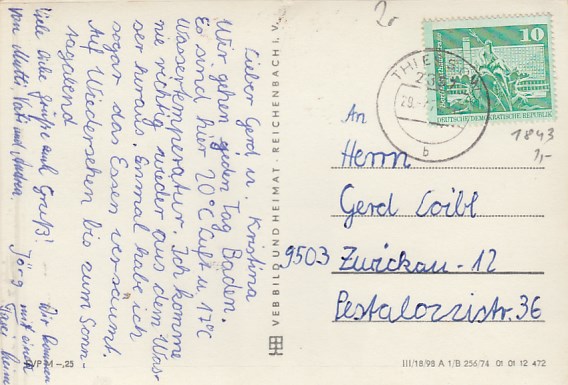 Lieber Gerd u. Kristina
Wir gehen jeden Tag Baden.
Es sind hier 20°C Luft u. 17°C
Wassertemperatur. Ich komme
nie richtig wieder aus dem Was-
ser heraus. Einmal habe ich
sogar das Essen versäumt.
Auf Wiedersehen bis zum Sonn-
tagabend
Jörg
Viele liebe Grüße und
Wir kommen
mit einem
Taxi heim
VEB BILD UND HEIMAT · REICHENBACH I. V.
EVP M -,25
10
DEUTSCHE DEMOKRATISCHE REPUBLIK
THIESSOW
b
1843
1,-
An
Herrn
Gerd Loibl
9503 Zwickau-12
Pestalozzistr. 36
III/18/98 A 1/B 256/74 01 01 12 472